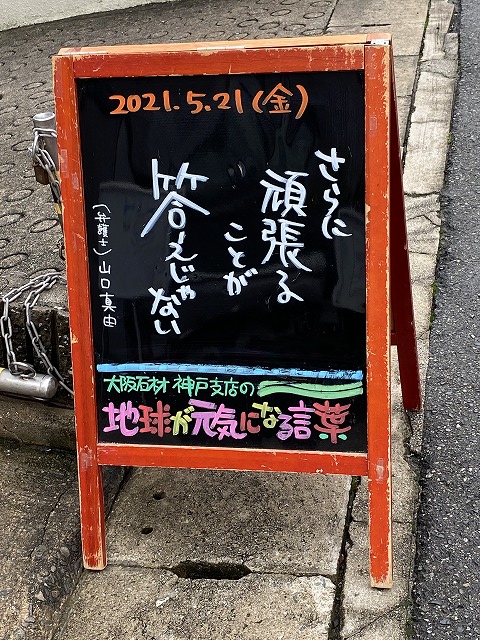 2021.5.21(金)
さらに
頑張る
ことが
答えじゃ
ない
(弁護士)山口真由
大阪石材 神戸支店の
地球が元気になる言葉